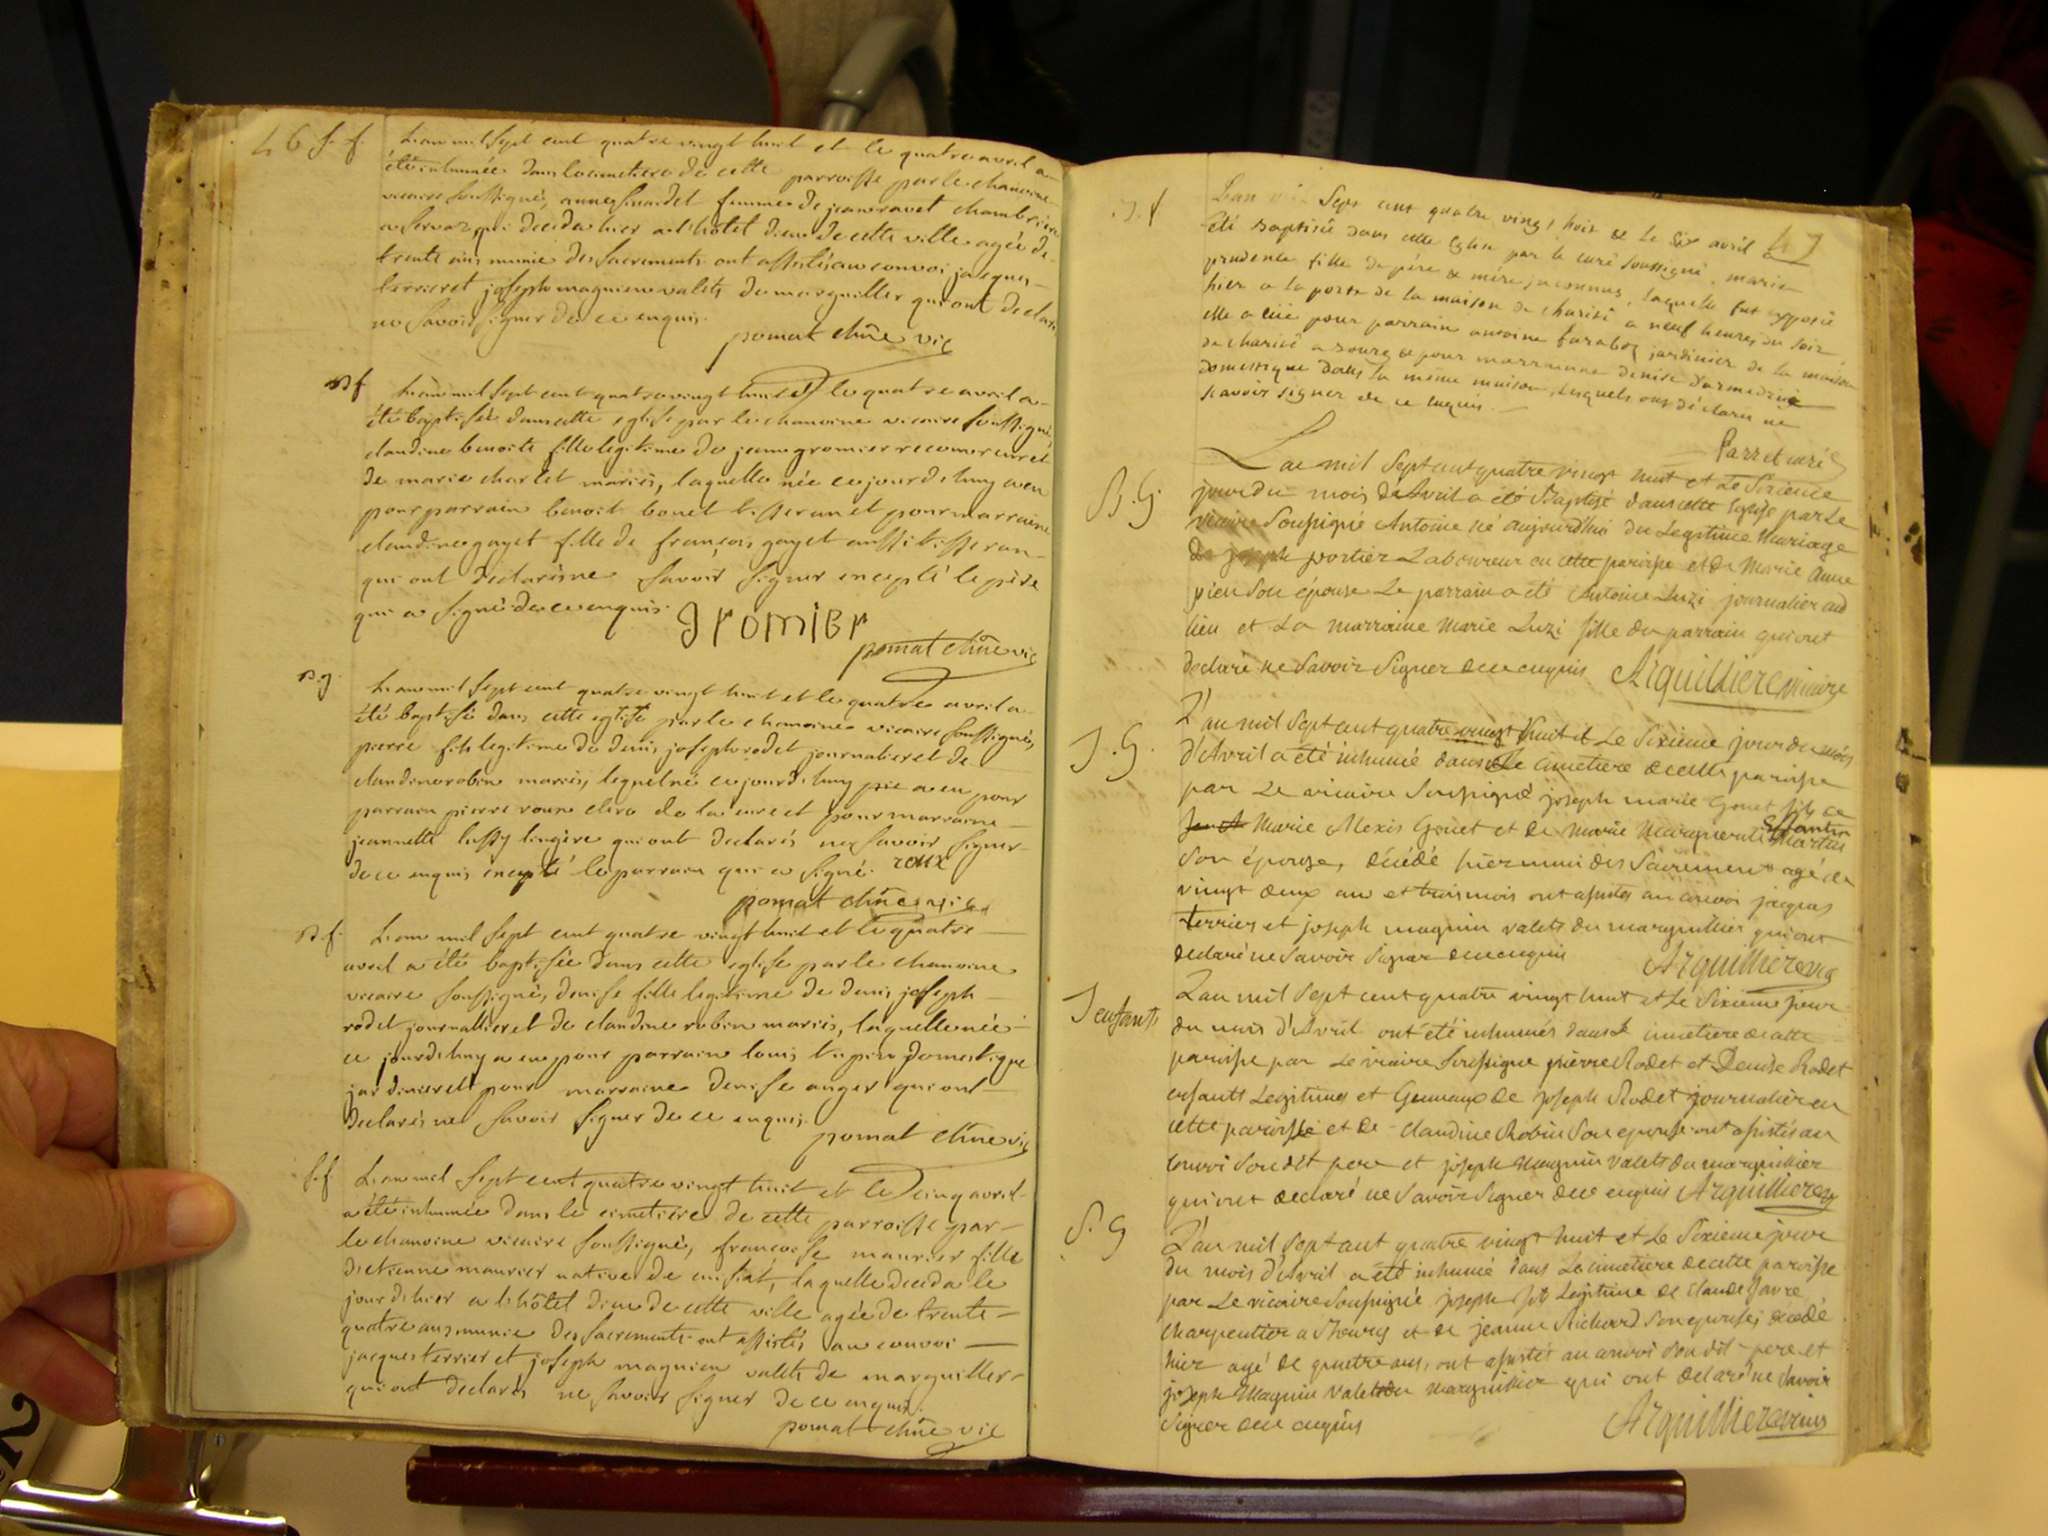 46 s. f. L'an mil sept cent quatre vingt huit et le quatre avril a
été inhumée dans le cimetiere de cette parroisse par le chanoine
vicaire soussigné, anne femme de jean ravet chambriere
a servas, qui deceda hier a l'hôtel dieu de cette ville agée de
trente ans munie des sacrements ont assistés au convoi jacques
terrier et joseph magnien valets de marguiller qui ont declarés
ne savoir signer de ce enquis.
pomat chne vic
B f L'an mil sept cent quatre vingt huit et le quatre avril a
été baptisée dans cette eglise par le chanoine vicaire soussigné,
claudine benoite fille legitime de jean gromier recouvreur et
de marie charlet mariés, laquelle née ce jourd'huy a eu
pour parrain benoit bonet tisseran et pour marraine
claudine gayet fille de françois gayet aussi tisseran
qui ont declarés ne savoir signer excepté le père
qui a signé de ce enquis.
gromier
pomat chne vic
B. g. L'an mil sept cent quatre vingt huit et le quatre avril a
été baptisé dans cette eglise par le chanoine vicaire soussigné,
pierre fils legitime de denis joseph rodet journalier et de
claudine robin mariés, lequel né ce jourd'huy a eu pour
parrain pierre roux clerc de la cure et pour marraine
jeannette lingère qui ont declarés ne savoir signer
de ce enquis excepté le parrain qui a signé. roux
pomat chne vic.
B. f. L'an mil sept cent quatre vingt huit et le quatre
avril a été baptisée dans cette eglise par le chanoine
vicaire soussigné, denise fille legitime de denis joseph
rodet journallier et de claudine robin mariés, laquelle née
ce jourd'huy a eu pour parrain louis domestique
jardinier et pour marraine denise anger qui ont
declarés ne savoir signer de ce enquis.
pomat chne vic
s. f L'an mil sept cent quatre vingt huit et le cinq avril
a été inhumée dans le cimetiere de cette parroisse par
le chanoine vicaire soussigné, françoise maurier fille
d'etienne maurier native de laquelle deceda le
jour d'hier a l'hôtel dieu de cette ville agée de trente
quatre ans munie des sacrements ont assistés au convoi
jacques terrier et joseph magnien valets de marguiller
qui ont declarés ne savoir signer de ce enquis.
pomat chne vic
47
B. f L'an mil Sept cent quatre vingt huit & le Six avril a
été Baptisée dans cette Eglise par le curé Soussigné, marie
prudente fille de père & mére inconnus, laquelle fut exposée
hier a la porte de la maison de charité a neuf heures du soir
elle a eue pour parrain antoine jardinier de la maison
de charité a bourg & pour marraine denise
domestique dans la même maison, lesquels ont déclaré ne
scavoir signer de ce enquis.
Parret curé
B. G. L'an mil sept cent quatre vingt huit et le Sixieme
jour du mois d'Avril a été Baptisé dans cette Eglise par Le
vicaire Soussigné Antoine né aujourd'hui du Legitime Mariage
de joseph portier Laboureur en cette paroisse et de Marie Anne
pieu Son épouse Le parrain a été Antoine Luzi journalier aud
lieu et La marraine Marie Luzi fille du parrain qui ont
declaré ne Savoir Signer de ce enquis Arquilliere vicaire
S. G. L'an mil Sept cent quatre vingt huit et Le Sixieme jour du mois
d'Avril a été inhumé dans Le cimetiere de cette paroisse
par Le vicaire Soussigné joseph marie Gouet fils de
Marie Alexis Gouet et de Marie Marguerite
Son épouse, décédé hier muni des Sacrements agé de
vingt deux ans et trois mois ont assistés au convoi jacques
terrier et joseph magnin valets du marguillier qui ont
declaré ne Savoir Signer de ce enquis Arquilliere vic
S enfants L'an mil Sept cent quatre vingt huit et Le Sixieme jour
du mois d'Avril ont été inhumés dans Le cimetiere de cette
paroisse par Le vicaire Soussigné pierre Rodet et Denise Rodet
enfants Légitimes et Gemeaux de Joseph Rodet journalier en
cette paroisse et de Claudine Robin Son epouse ont assistés au
convoi Son dit pere et joseph Magnin valets du marguillier
qui ont declaré ne Savoir Signer de ce enquis Arquilliere vic
S. G L'an mil Sept cent quatre vingt huit et Le Sixieme jour
du mois d'Avril a été inhumé dans Le cimetiere de cette paroisse
par Le vicaire Soussigné joseph fils Légitime de Claude favre
charpentier a Bourg et de jeanne Richard Son epouse, décédé
hier agé de quatre ans, ont assistés au convoi Son dit pere et
joseph Magnin valet du marguillier qui ont declaré ne Savoir
Signer de ce enquis Arquilliere vicaire